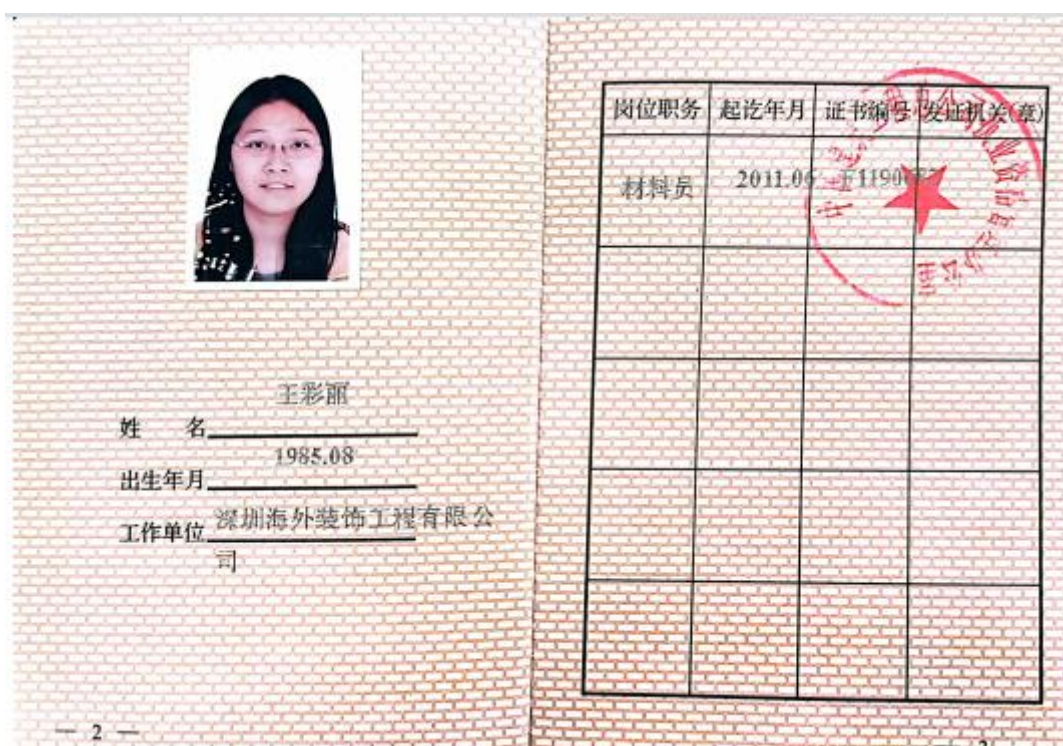 王彩丽
姓 名
1985.08
出生年月
工作单位 深圳海外装饰工程有限公
司
— 2 —
岗位职务 起讫年月 证书编号 发证机关(章)
材料员 2011.06